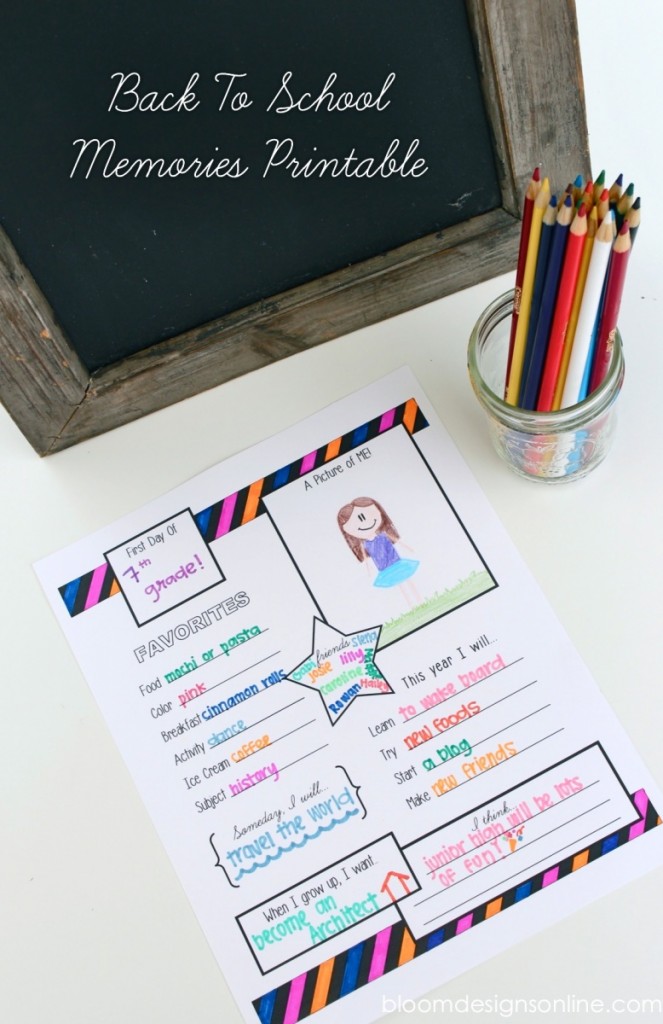 Back To School
Memories Printable
First Day Of
7th
grade!
A Picture of ME!
FAVORITES
Food mochi or pasta
Color pink
Breakfast cinnamon rolls
Activity dance
Ice Cream coffee
Subject history
friends Slena
Josie lilly
Caroline
Rowan Hailey
This year I will...
Learn to wake board
Try new foods
Start a blog
Make new friends
Someday, I will...
travel the world
When I grow up, I want...
become an
Architect
I think
junior high will be lots
of fun!
bloomdesignsonline.com